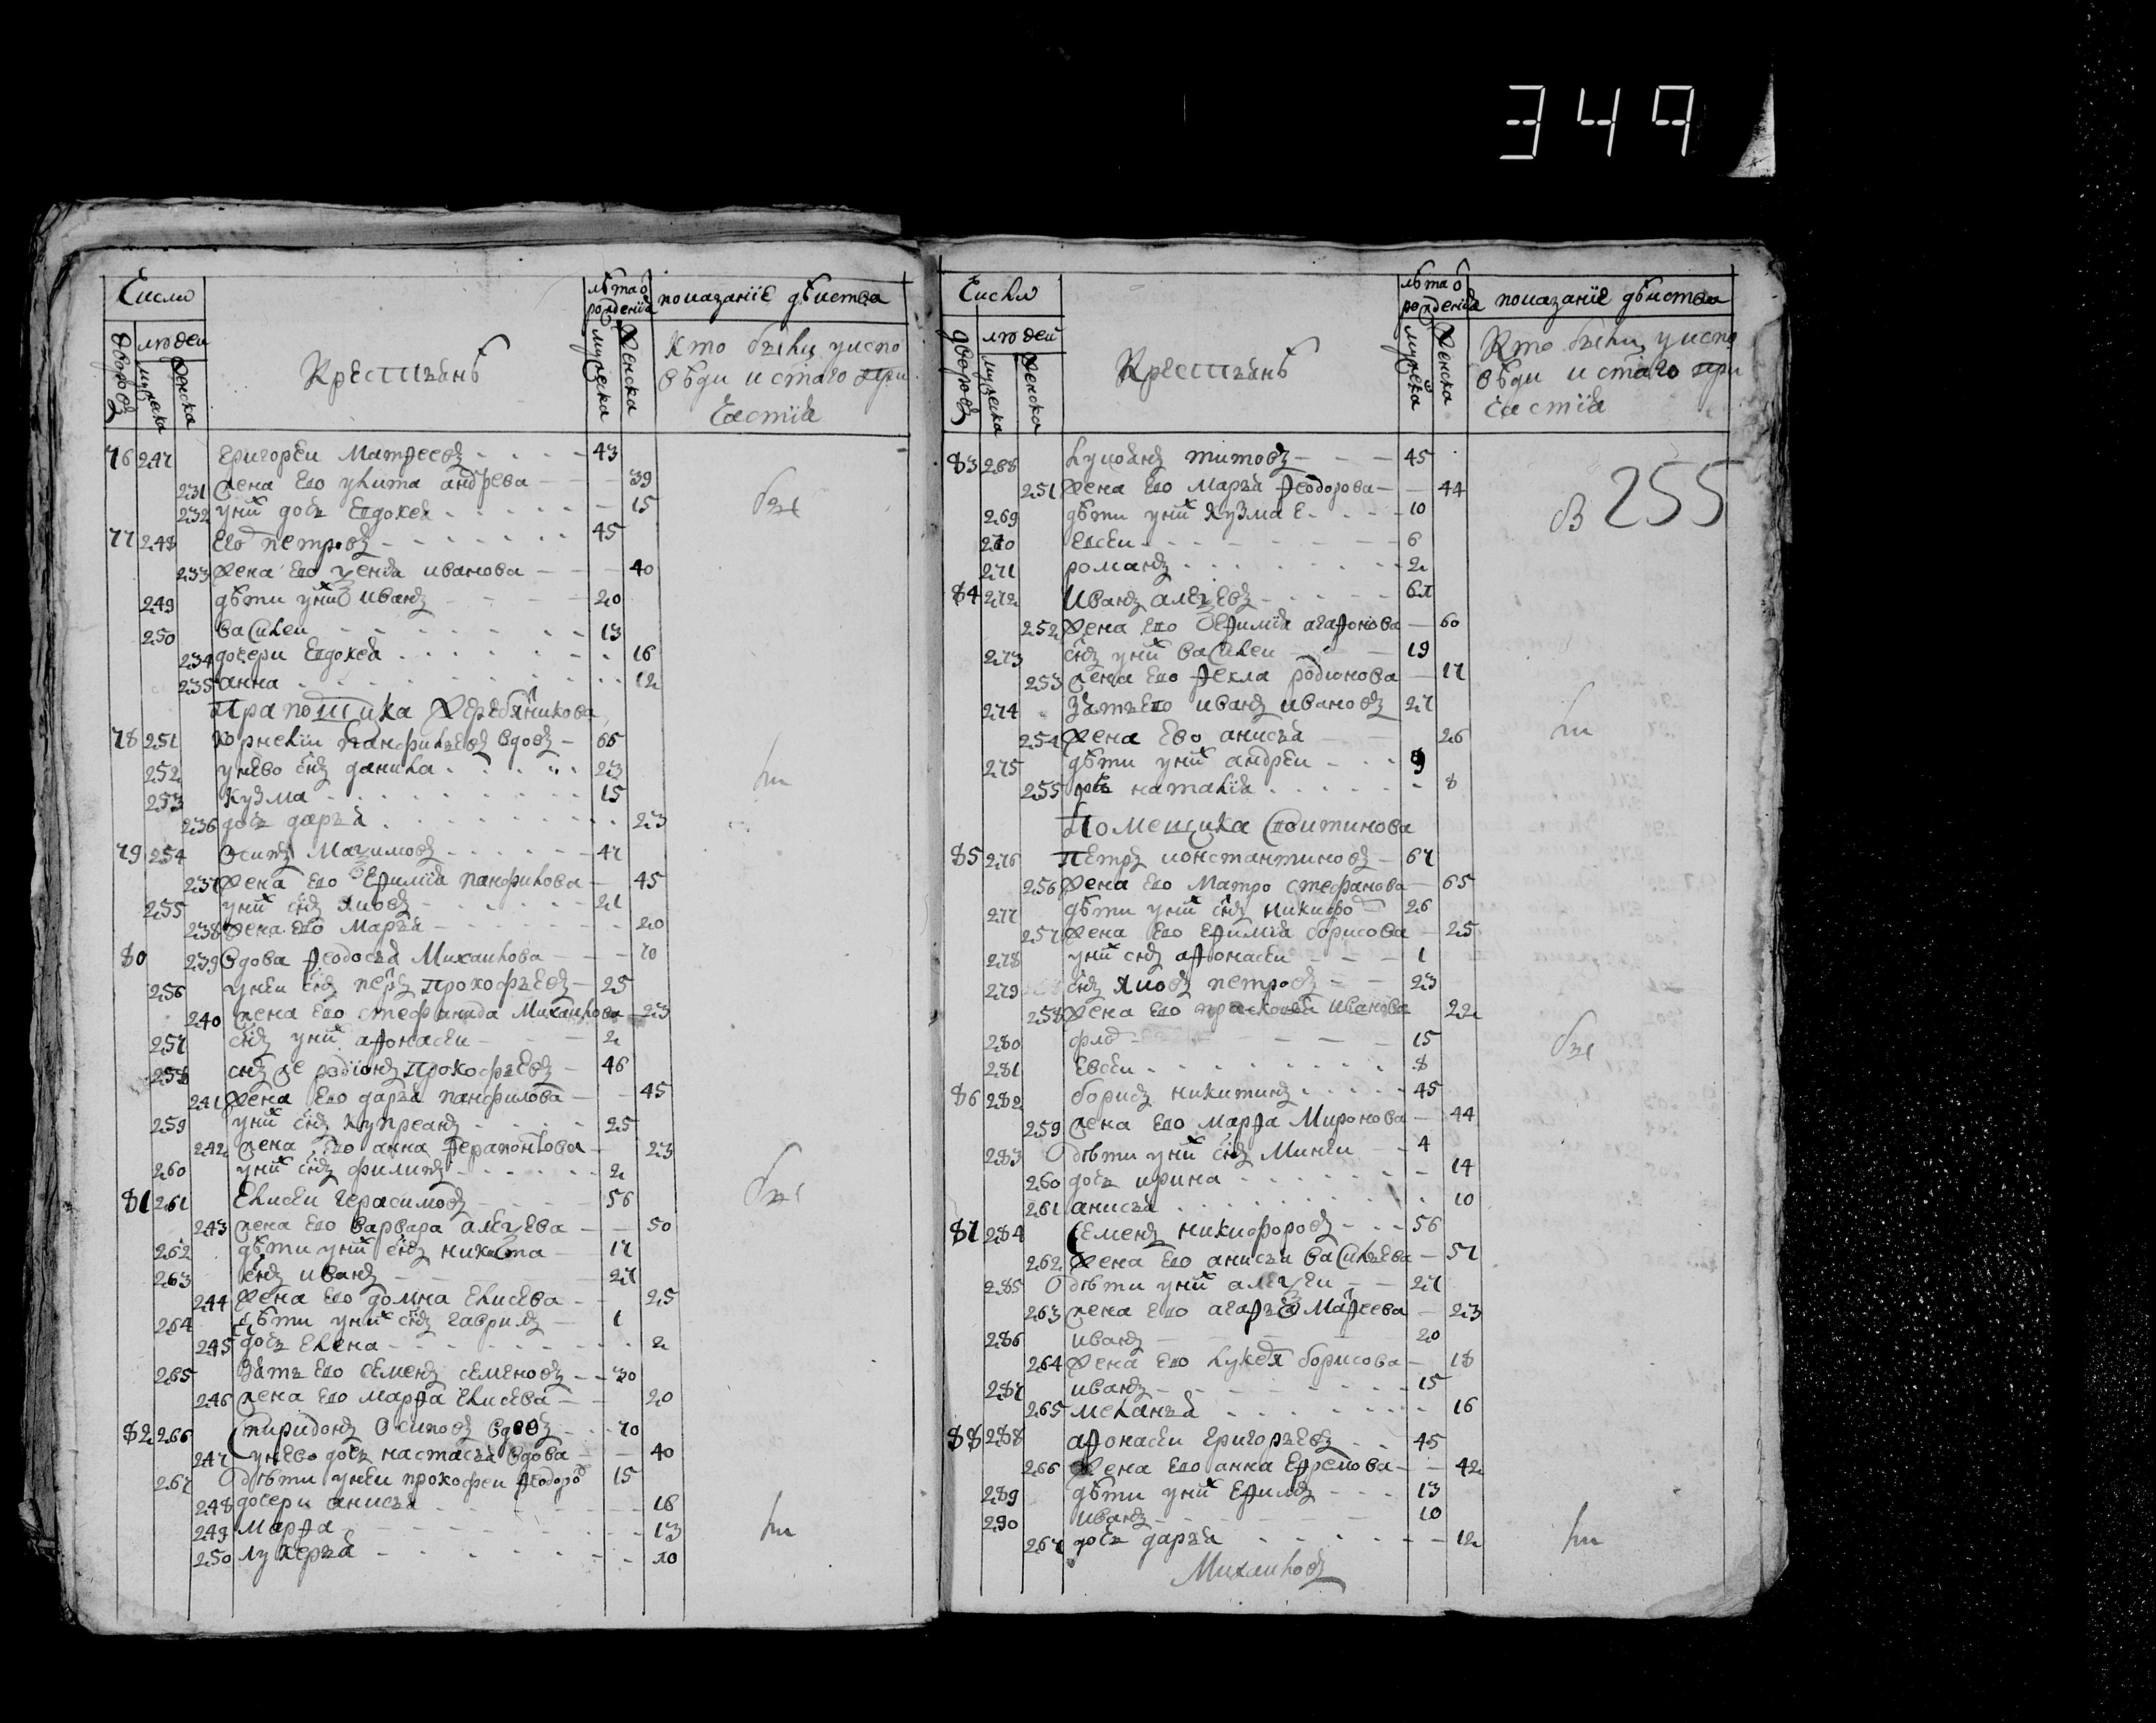 349
Числа
Крестьянъ
лѣта ѿ рожденїѧ
показанїе дѣиства
дворовъ
людеи
мужеска
женска
мужеска
женска
Кто былъ у испо
вѣди и с̃таго при
частїѧ
76 247 Григореи Матфеевъ 43
231 жена ево улита андрева 39
232 у них дочь евдокеѧ 15
77 248 петровъ 45
233 жена ево ивановa 40
249 дѣти у них иванъ 20
250 василеи 13
234 дочери евдокеѧ 16
235 анна 12
Прапощика Жеребятникова
78 251 Корнелїи панфильевъ вдовъ 65
252 у нево с̃нъ данила 23
253 кузма 15
236 дочь дарьѧ 23
79 254 Осипъ Маѯимовъ 47
237 жена ево Ефимїѧ панфилова 45
255 у них с̃нъ яковъ 21
238 жена ево Марьѧ 20
80 239 вдова феодосьѧ Михаилова 70
256 у неи с̃нъ петръ прокофьевъ 25
240 жена ево стефанида Михаилова 23
257 с̃нъ у них афонасеи 2
258 с̃нъ же родїонъ Прокофьевъ 46
241 жена ево дарьѧ панфилова 45
259 у них с̃нъ купреанъ 25
242 жена ево анна ферапонтова 23
260 у них с̃нъ филипъ 2
81 261 Елисеи герасимовъ 56
243 жена ево варвара алеѯева 50
262 дѣти у них с̃нъ никита 17
263 с̃нъ иванъ 27
244 жена ево домна елисева 25
264 дѣти у них с̃нъ гаврилъ 1
245 дочь елена 2
265 зѧть ево семенъ семеновъ 30
246 жена ево марфа елисева 20
82 266 Спиридонъ Осиповъ вдовъ 70
247 у нево дочь настасьѧ вдова 40
267 дѣти у неи прокофеи феодоро 15
248 дочери анисьѧ 16
249 марфа 13
250 лукерьѧ 10
Числа
Крестьянъ
лѣта ѿ рожденїѧ
показанїе дѣиства
дворовъ
людеи
мужеска
женска
мужеска
женска
Кто былъ у испо
вѣди и с̃таго при
частїѧ
255
83 268 Лукоянъ титовъ 45
251 жена ево Марьѧ феодорова 44
269 дѣти у них кузма 10
270 евсеи 6
271 романъ 2
84 272 Иванъ алеѯевъ 61
252 жена ево Ефимїѧ агафонова 60
273 с̃нъ у них василеи 19
253 жена ево фекла родионова 17
274 зѧть ево иванъ ивановъ 27
254 жена ево анисьѧ 26
275 дѣти у них андреи 9
255 дочь наталїѧ 8
Помещика
85 276 Петръ константиновъ 67
256 жена ево Матро стефанова 65
277 дѣти у них с̃нъ никифо 26
257 жена ево ефимїѧ борисова 25
278 у них с̃нъ афонасеи 1
279 с̃нъ яковъ петровъ 23
258 жена ево прасковьѧ иванова 22
280 15
281 евсеи 8
86 282 борисъ никитинъ 45
259 жена ево марфа Миронова 44
283 дѣти у них с̃нъ Минеи 4
260 дочь ирина 14
261 анисьѧ 10
87 284 Семенъ никифоровъ 56
262 жена ево анисьѧ васильева 57
285 дѣти у них алеѯеи 27
263 жена ево агафьѧ Матфеева 23
286 иванъ 20
264 жена ево лукеѧ борисова 18
287 иванъ 15
265 меланьѧ 16
88 288 афонасеи григорьевъ 45
266 жена ево анна ефремова 42
289 дѣти у них ефимъ 13
290 иванъ 10
267 дочь дарьѧ 12
Михаиловъ